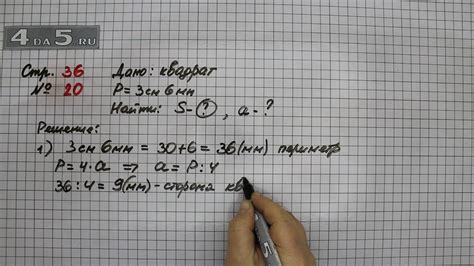 4 ДА 5.RU
Стр. 36 Дано: квадрат
№ 20 P = 3см 6мм
Найти: S-?, a-?
Решение:
1) 3см 6мм = 30+6 = 36(мм) периметр
P = 4·a ⇒ a = P:4
36:4 = 9(мм) - сторона кв